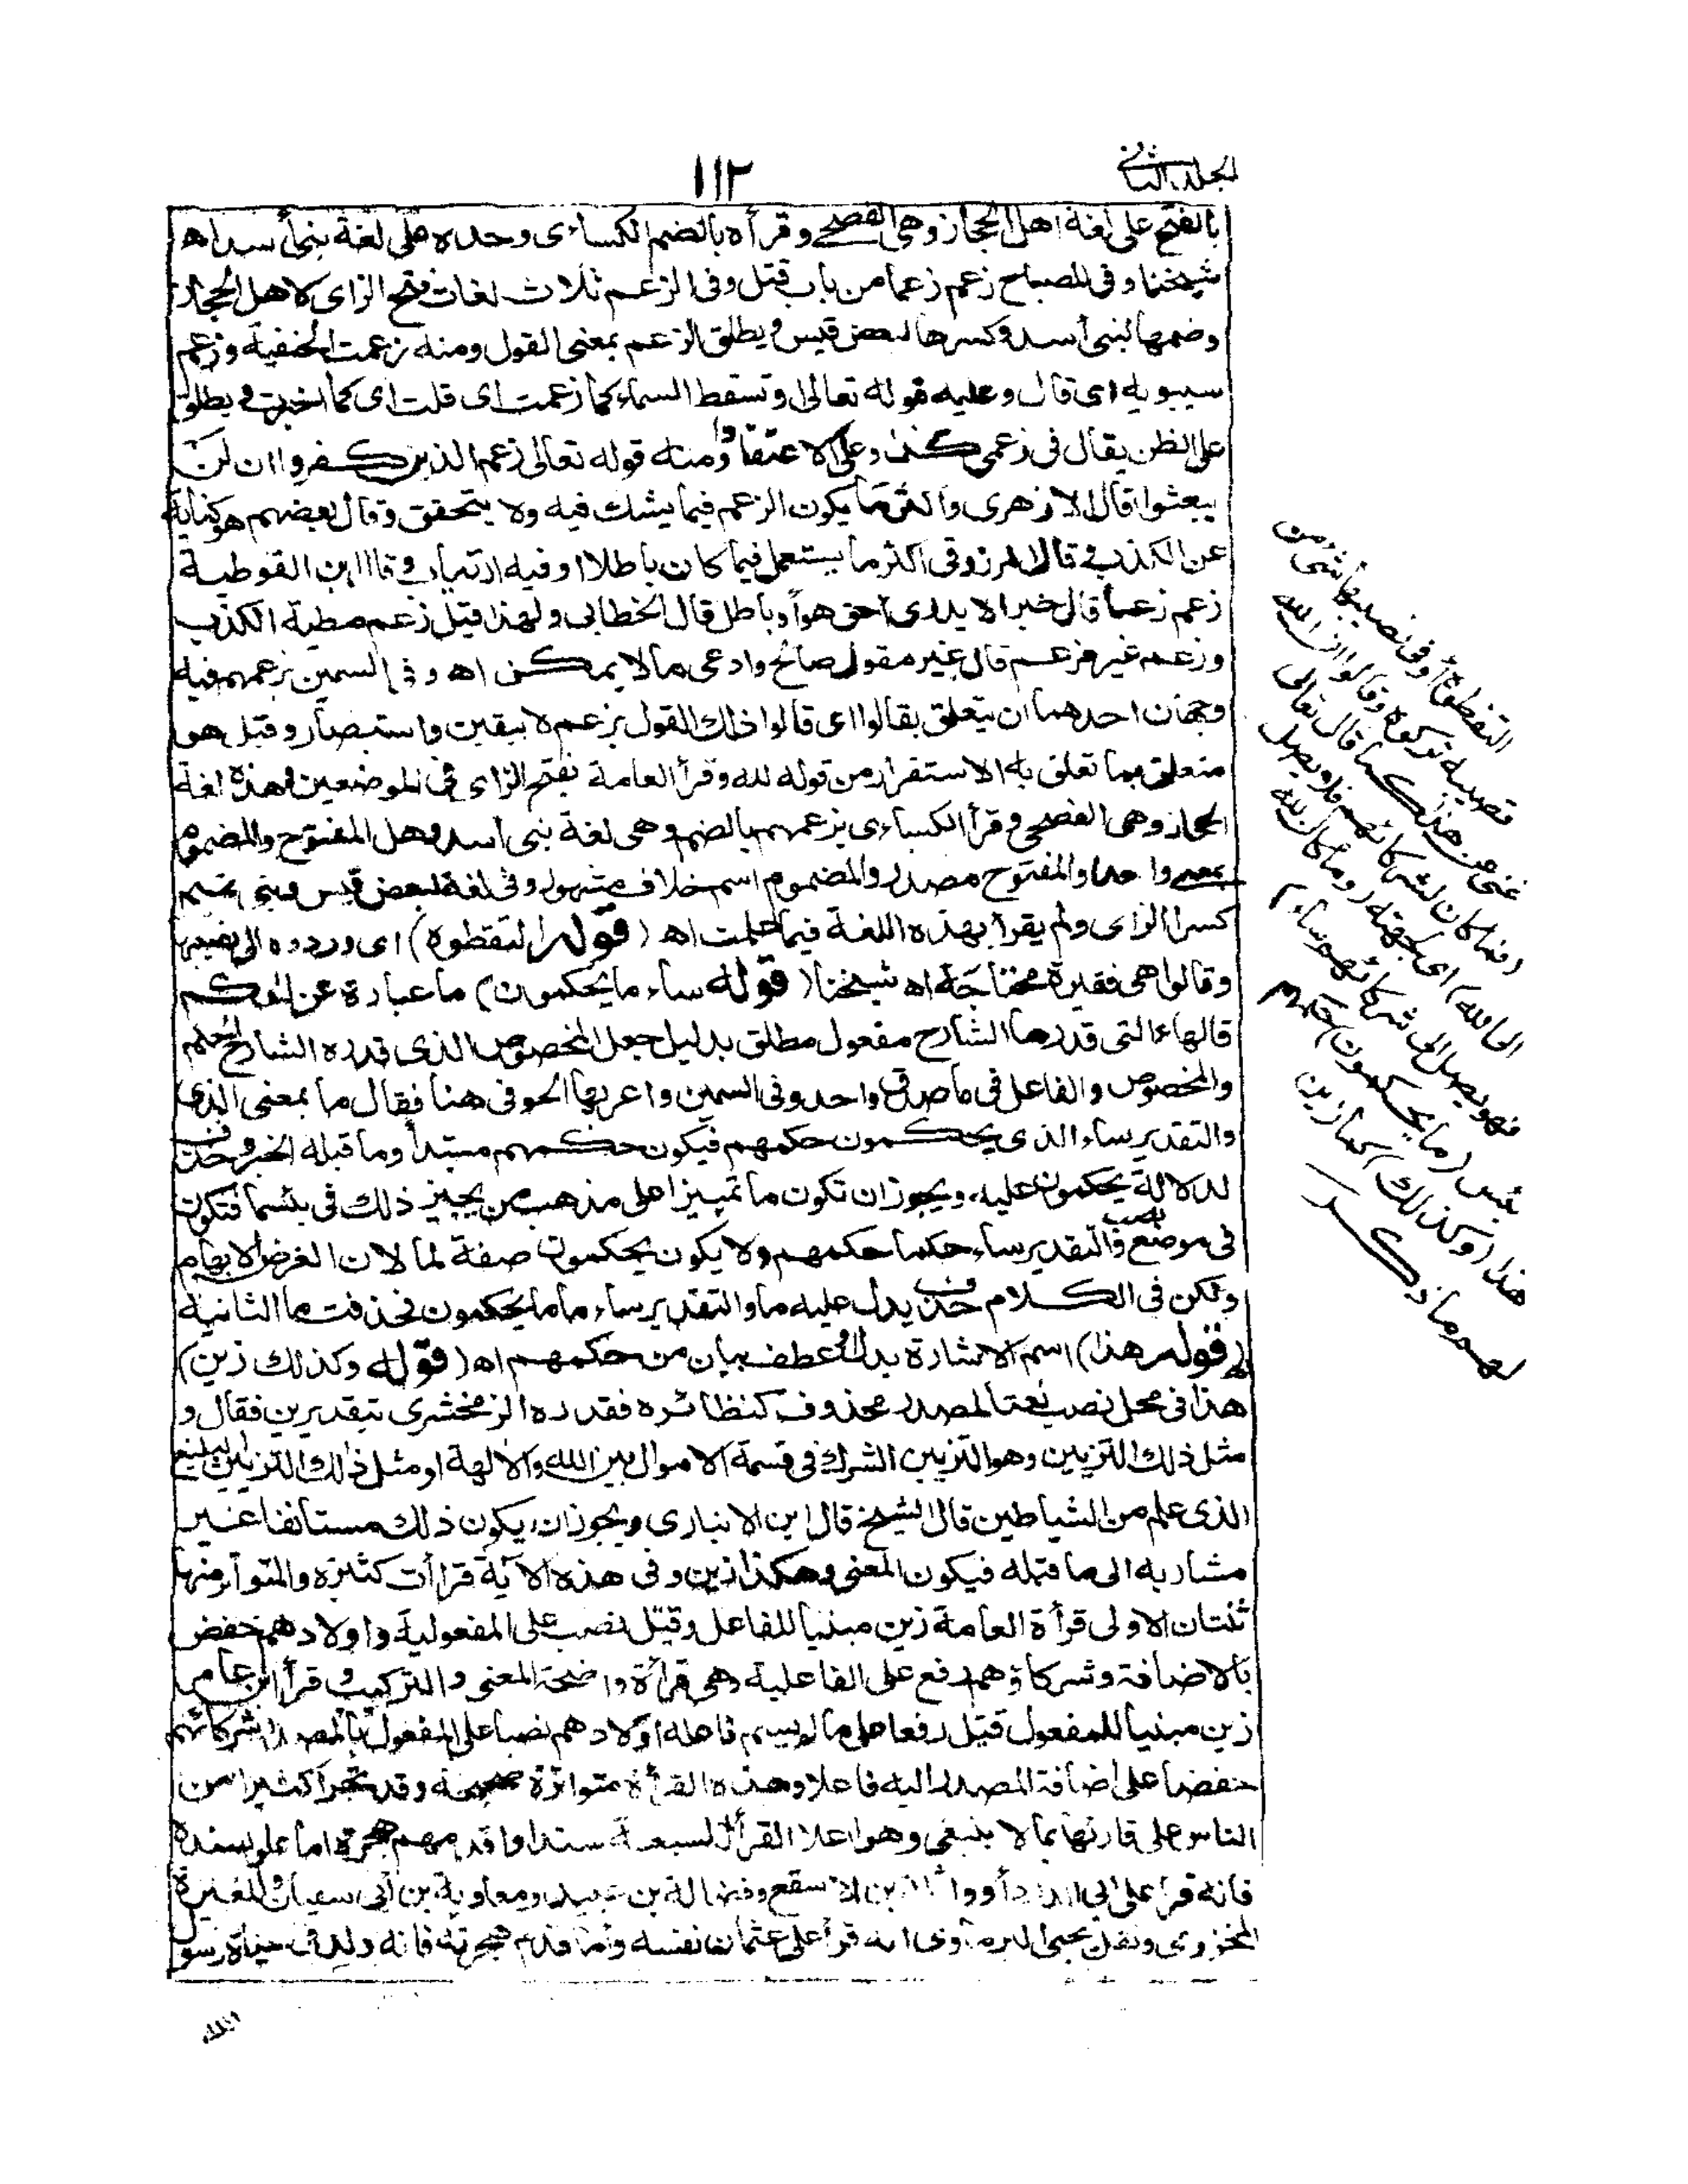 الجلد الثاني
١١٢
بالفتح على لغة اهل الحجاز وهى الفصحى وقرأه بالضم الكساءى وحده على لغة بنى أسد اه
شيخنا وفى المصباح زعم زعما من باب قتل وفى الزعم ثلاث لغات فتح الزاى كاهل الحجاز
وضمها لبنى أسد وكسرها لبعض قيس ويطلق الزعم بمعنى القول ومنه زعمت الحنفية وزعم
سيبويه اى قال وعليه قوله تعالى او تسقط السماء كما زعمت اى قلت اى كما اخبرت ويطلق
على الظن يقال فى زعمى كذا وعلى الاعتقاد ومنه قوله تعالى زعم الذين كفروا ان لن
يبعثوا قال الازهرى واكثر ما يكون الزعم فيما يشك فيه ولا يتحقق وقال بعضهم هو كناية
عن الكذب وقال المرزوقى اكثر ما يستعمل فيما كان باطلا او فيه ارتياب وقال ابن القوطية
زعم زعما قال خبرا لا يدرى احق هو أو باطل قال الخطابى ولهذا قيل زعم مطية الكذب
وزعم غير مزعم قال غير مقول صالح وادعى ما لا يمكن اه وفى السمين بزعمهم فيه
وجهان احدهما ان يتعلق بقالوا اى قالوا ذلك القول بزعم لا بيقين واستبصار وقيل هو
متعلق بما تعلق به الاستقرار من قوله لله وقرأ العامة بفتح الزاى فى الموضعين وهذه لغة
الحجاز وهى الفصحى وقرأ الكساءى بزعمهم بالضم وهى لغة بنى أسد وهل المفتوح والمضموم
بمعنى واحد او المفتوح مصدر والمضموم اسم خلاف مشهور وفى لغة لبعض قيس وبنى تميم
كسر الزاى ولم يقرأ بهذه اللغة فيما علمت اه (قوله التقطوه) اى وردوه الى نصيبها
وقالوا هى فقيرة محتاجة اه شيخنا (قوله ساء ما يحكمون) ما عبارة عن الحكم
قالهاء التى قدرها الشارح مفعول مطلق بدليل جعل المخصوص الذى قدره الشارح حكمهم
والمخصوص والفاعل فى ماصدق واحد وفى السمين واعربها الحوفى هنا فقال ما بمعنى الذى
والتقدير ساء الذى يحكمون حكمهم فيكون حكمهم مبتدأ وما قبله الخبر وحذف
لدلالة يحكمون عليه ويجوز ان تكون ما تمييزا على مذهب من يجيز ذلك فى بئسما فتكون
فى موضع نصب والتقدير ساء حكما حكمهم ولا يكون يحكمون صفة لما لان الغرض الابهام
ولكن فى الكلام حذف يدل عليه ما والتقدير ساء ما ما يحكمون فحذفت ما الثانية
(قوله هذا) اسم الاشارة بدل او عطف بيان من حكمهم اه (قوله وكذلك زين)
هذا فى محل نصب نعتا لمصدر محذوف كنظائره فقدره الزمخشرى بتقديرين فقال و
مثل ذلك التزيين وهو التزيين الشرك فى قسمة الاموال بين الله والآلهة او مثل ذلك التزيين البليغ
الذى علم من الشياطين قال الشيخ قال ابن الانبارى ويجوز ان يكون ذلك مستأنفا غير
مشار به الى ما قبله فيكون المعنى وهكذا زين وفى هذه الآية قراآت كثيرة والمتواتر منها
ثنتان الاولى قرأة العامة زين مبنيا للفاعل وقتل نصب على المفعولية واولادهم خفض
بالاضافة وشركاؤهم رفع على الفاعلية وهى قرأة واضحة المعنى والتركيب وقرأ ابن عامر
زين مبنيا للمفعول قتل رفعا على ما لم يسم فاعله اولادهم نصبا على المفعول بالمصدر شركائهم
خفضا على اضافة المصدر اليه فاعلا وهذه القرأة متواترة صحيحة وقد تجرأ كثير من
الناس على قارئها بما لا ينبغى وهو اعلا القرأ السبعة سندا واقدمهم هجرة اما علو سنده
فانه قرأ على ابى الدرداء وواثلة بن الاسقع وفضالة بن عبيد ومعاوية بن أبى سفيان والمغيرة
المخزومى ونقل يحيى الذمارى انه قرأ على عثمان نفسه وأما قدم هجرته فانه ولد فى حياة رسول
الله
التقطوه أو فى نصيبها شئ من
نصيبه تركوه وقالوا ان الله
غنى عن هذا كما قال تعالى
(فما كان لشركائهم فلا يصل
الى الله) اى لجهته (وما كان لله
فهو يصل الى شركائهم ساء)
بئس (ما يحكمون) حكمهم
هذا (وكذلك) كما زين
لهم ما ذكر